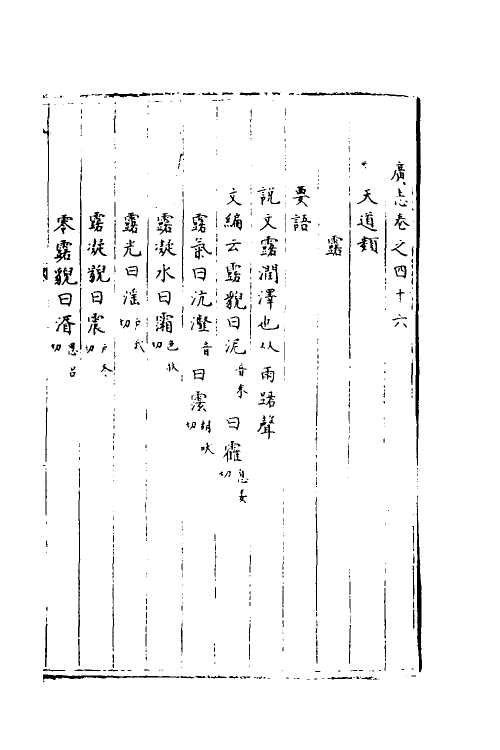 廣志卷之四十六
天道類
露
要語
說文露潤澤也从雨路聲
文編云露貌曰泥音 曰 切
露氣曰沆瀣音 曰 切
露凝水曰霜色 切
露光曰 切
露凝貌曰 切
零露貌曰湑思呂切